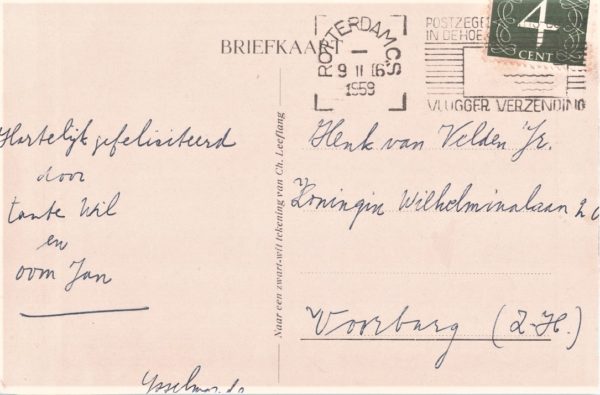 BRIEFKAART
ROTTERDAM C.S
9 II 16
1959
POSTZEGE
IN DE HOE
VLUGGER VERZENDING
4
CENT
Hartelijk gefeliciteerd
door
tante Wil
en
oom Jan
Naar een zwart-wit tekening van Ch. Leeflang
Henk van Velden Jr.
Koningin Wilhelminalaan 2
Voorburg (Z-H.)